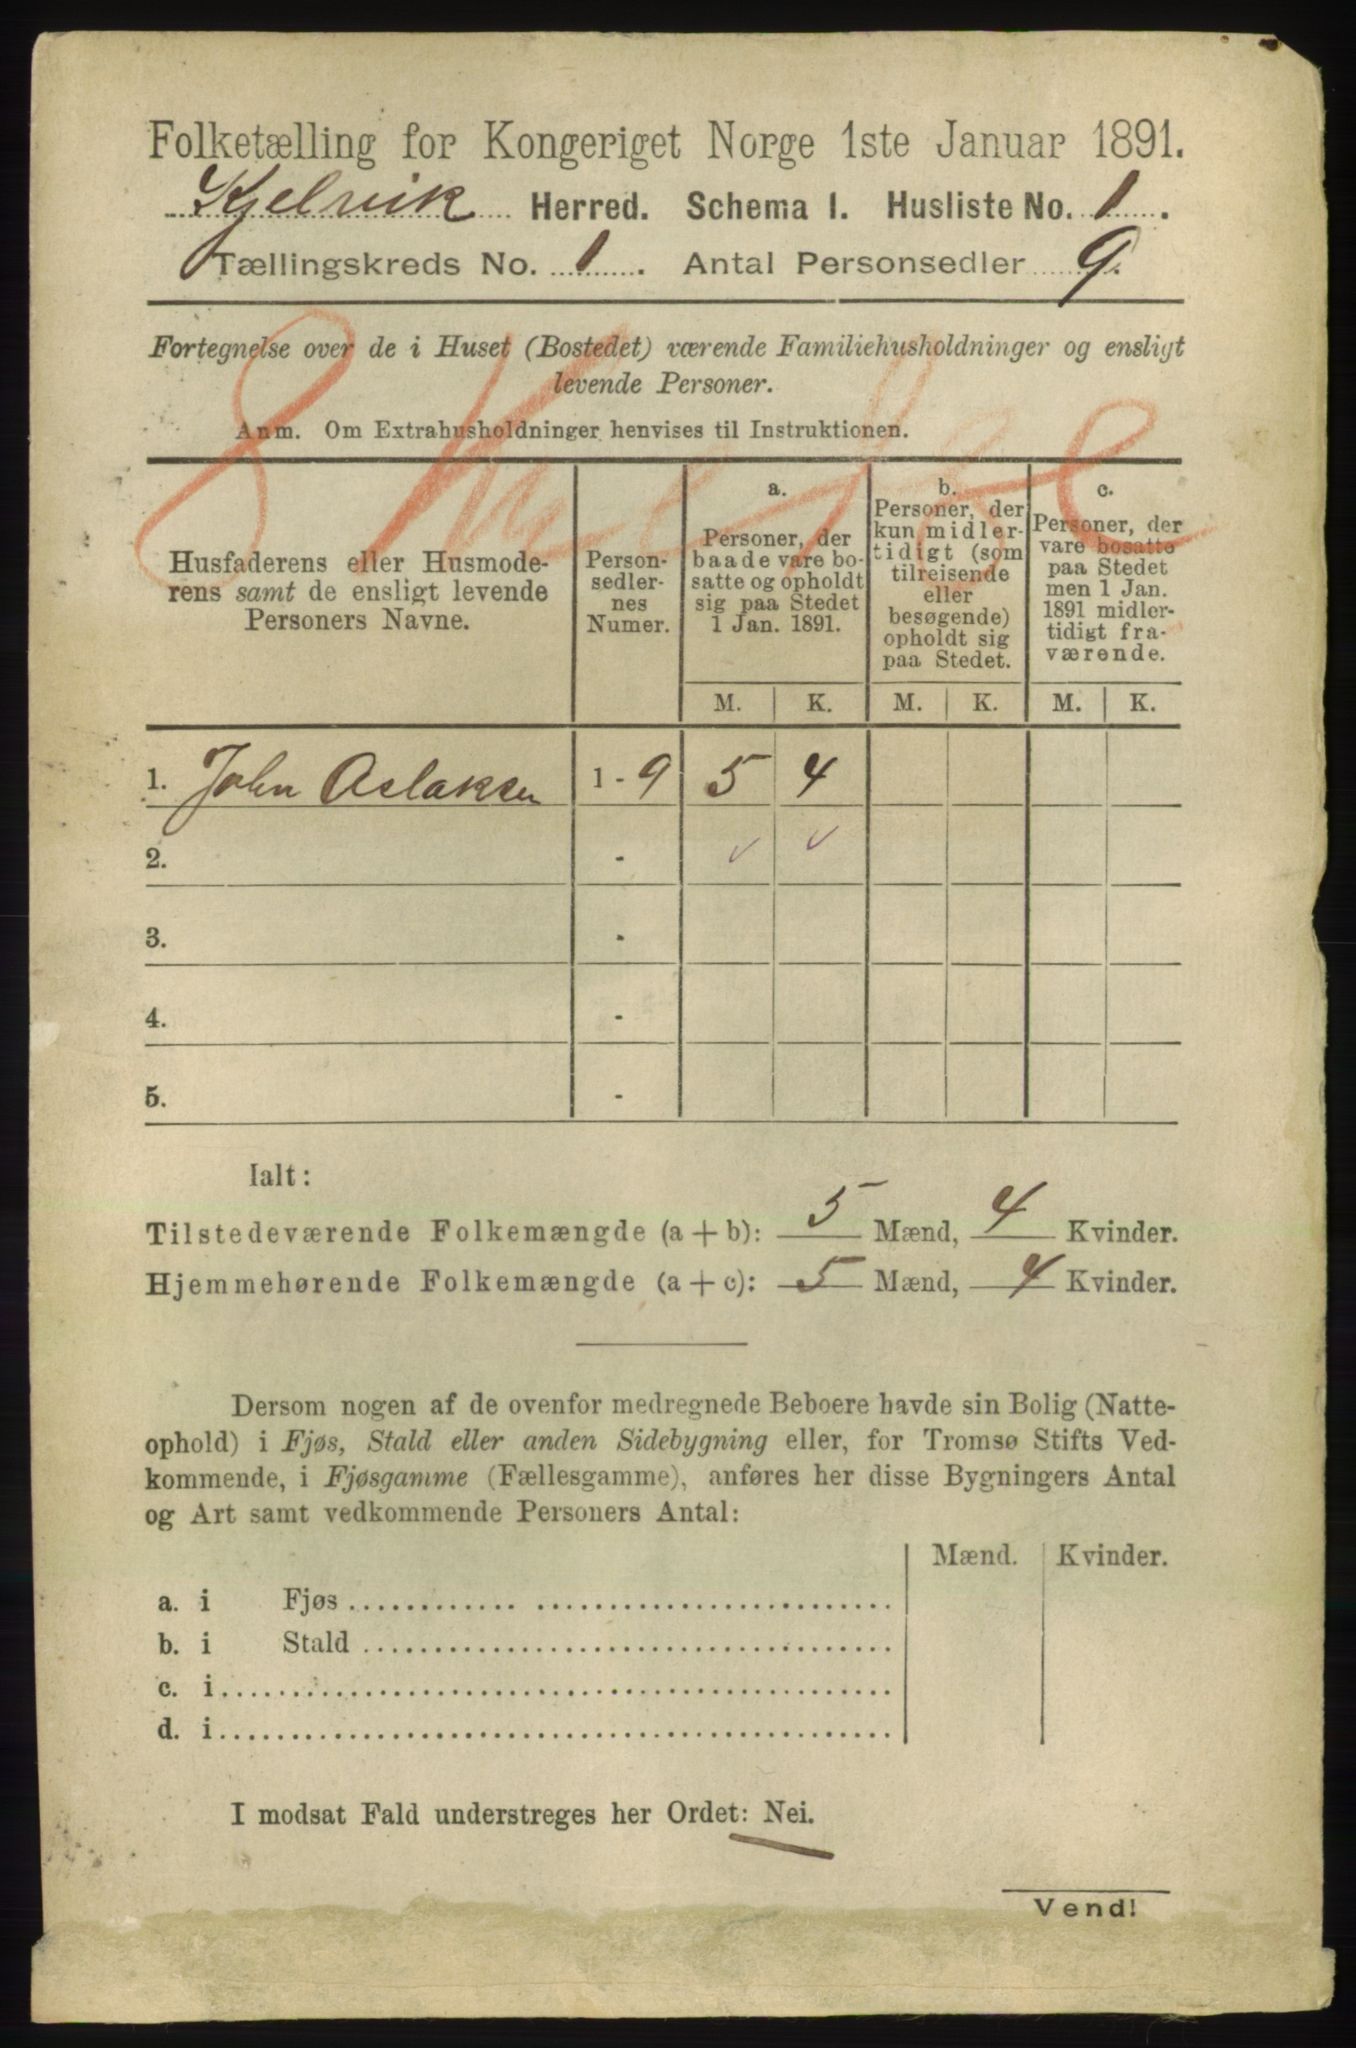 Folketælling for Kongeriget Norge 1ste Januar 1891.
Kjelvik Herred. Schema 1. Husliste No. 1.
Tællingskreds No. 1. Antal Personsedler 9.
Fortegnelse over de i Huset (Bostedet) værende Familiehusholdninger og ensligt
levende Personer.
Anm. Om Extrahusholdninger henvises til Instruktionen.
Husfaderens eller Husmode-
rens samt de ensligt levende
Personers Navne.
Person-
sedler-
nes
Numer.
a.
Personer, der
baade vare bo-
satte og opholdt
sig paa Stedet
1 Jan. 1891.
b.
Personer, der
kun midler-
tidigt (som
tilreisende
eller
besøgende)
opholdt sig
paa Stedet.
c.
Personer, der
vare bosatte
paa Stedet
men 1 Jan.
1891 midler-
tidigt fra-
værende.
M. K. M. K. M. K.
1. John Aslaksen 1 - 9 5 4
2. -
3. -
4. -
5. -
Ialt:
Tilstedeværende Folkemængde (a + b): 5 Mænd, 4 Kvinder.
Hjemmehørende Folkemængde (a + c): 5 Mænd, 4 Kvinder.
Dersom nogen af de ovenfor medregnede Beboere havde sin Bolig (Natte-
ophold) i Fjøs, Stald eller anden Sidebygning eller, for Tromsø Stifts Ved-
kommende, i Fjøsgamme (Fællesgamme), anføres her disse Bygningers Antal
og Art samt vedkommende Personers Antal:
Mænd. Kvinder.
a. i Fjøs
b. i Stald
c. i
d. i
I modsat Fald understreges her Ordet: Nei.
Vend!